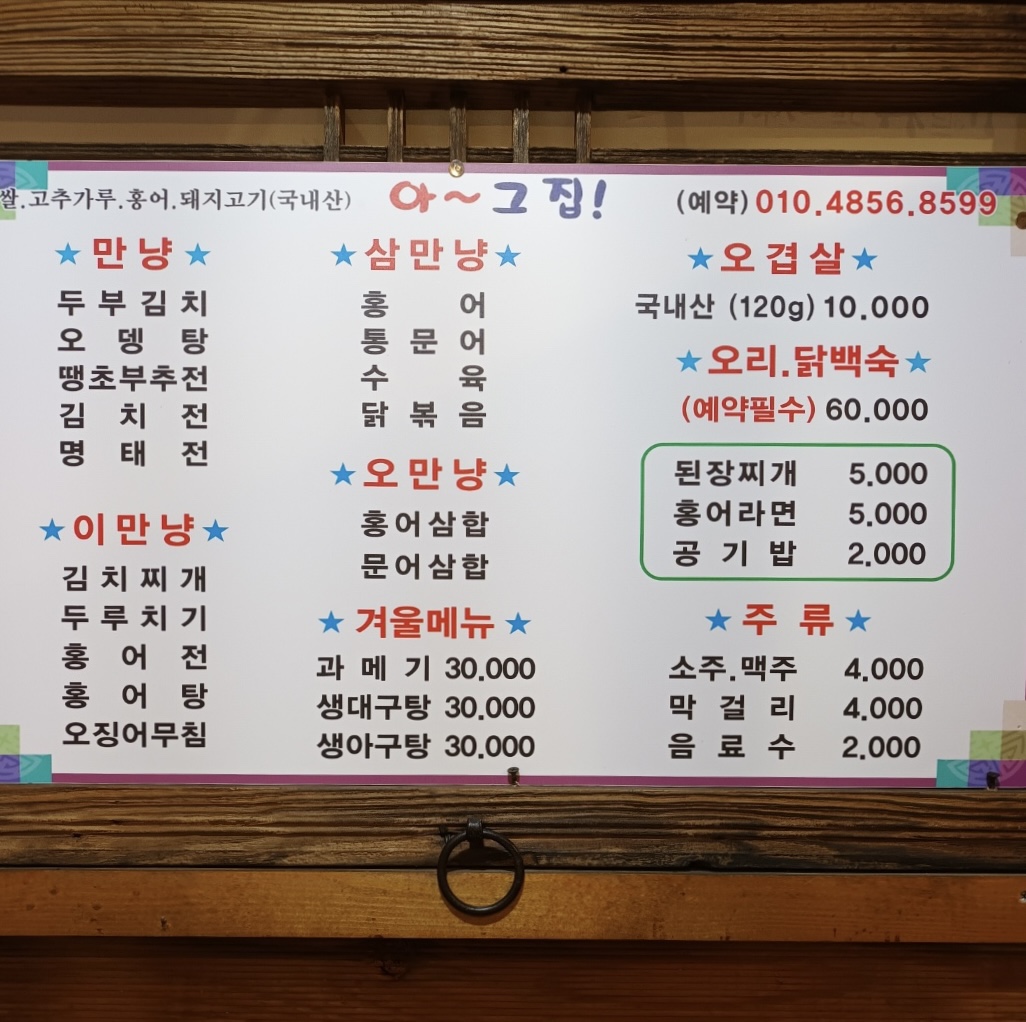 쌀.고추가루.홍어.돼지고기(국내산)
아~그집!
(예약) 010.4856.8599
★만냥★
두부김치
오뎅탕
땡초부추전
김치전
명태전
★이만냥★
김치찌개
두루치기
홍어전
홍어탕
오징어무침
★삼만냥★
홍어
통문어
수육
닭볶음
★오만냥★
홍어삼합
문어삼합
★겨울메뉴★
과메기 30.000
생대구탕 30.000
생아구탕 30.000
★오겹살★
국내산 (120g) 10.000
★오리.닭백숙★
(예약필수) 60.000
된장찌개 5.000
홍어라면 5.000
공기밥 2.000
★주류★
소주.맥주 4.000
막걸리 4.000
음료수 2.000